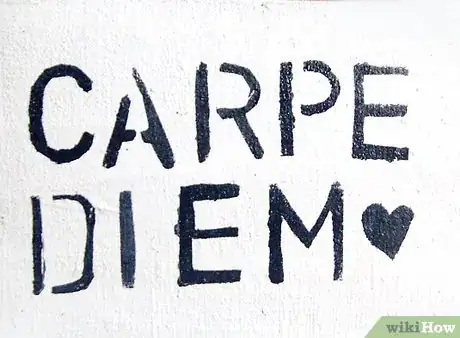 CARPE
DIEM♥
wikiHow